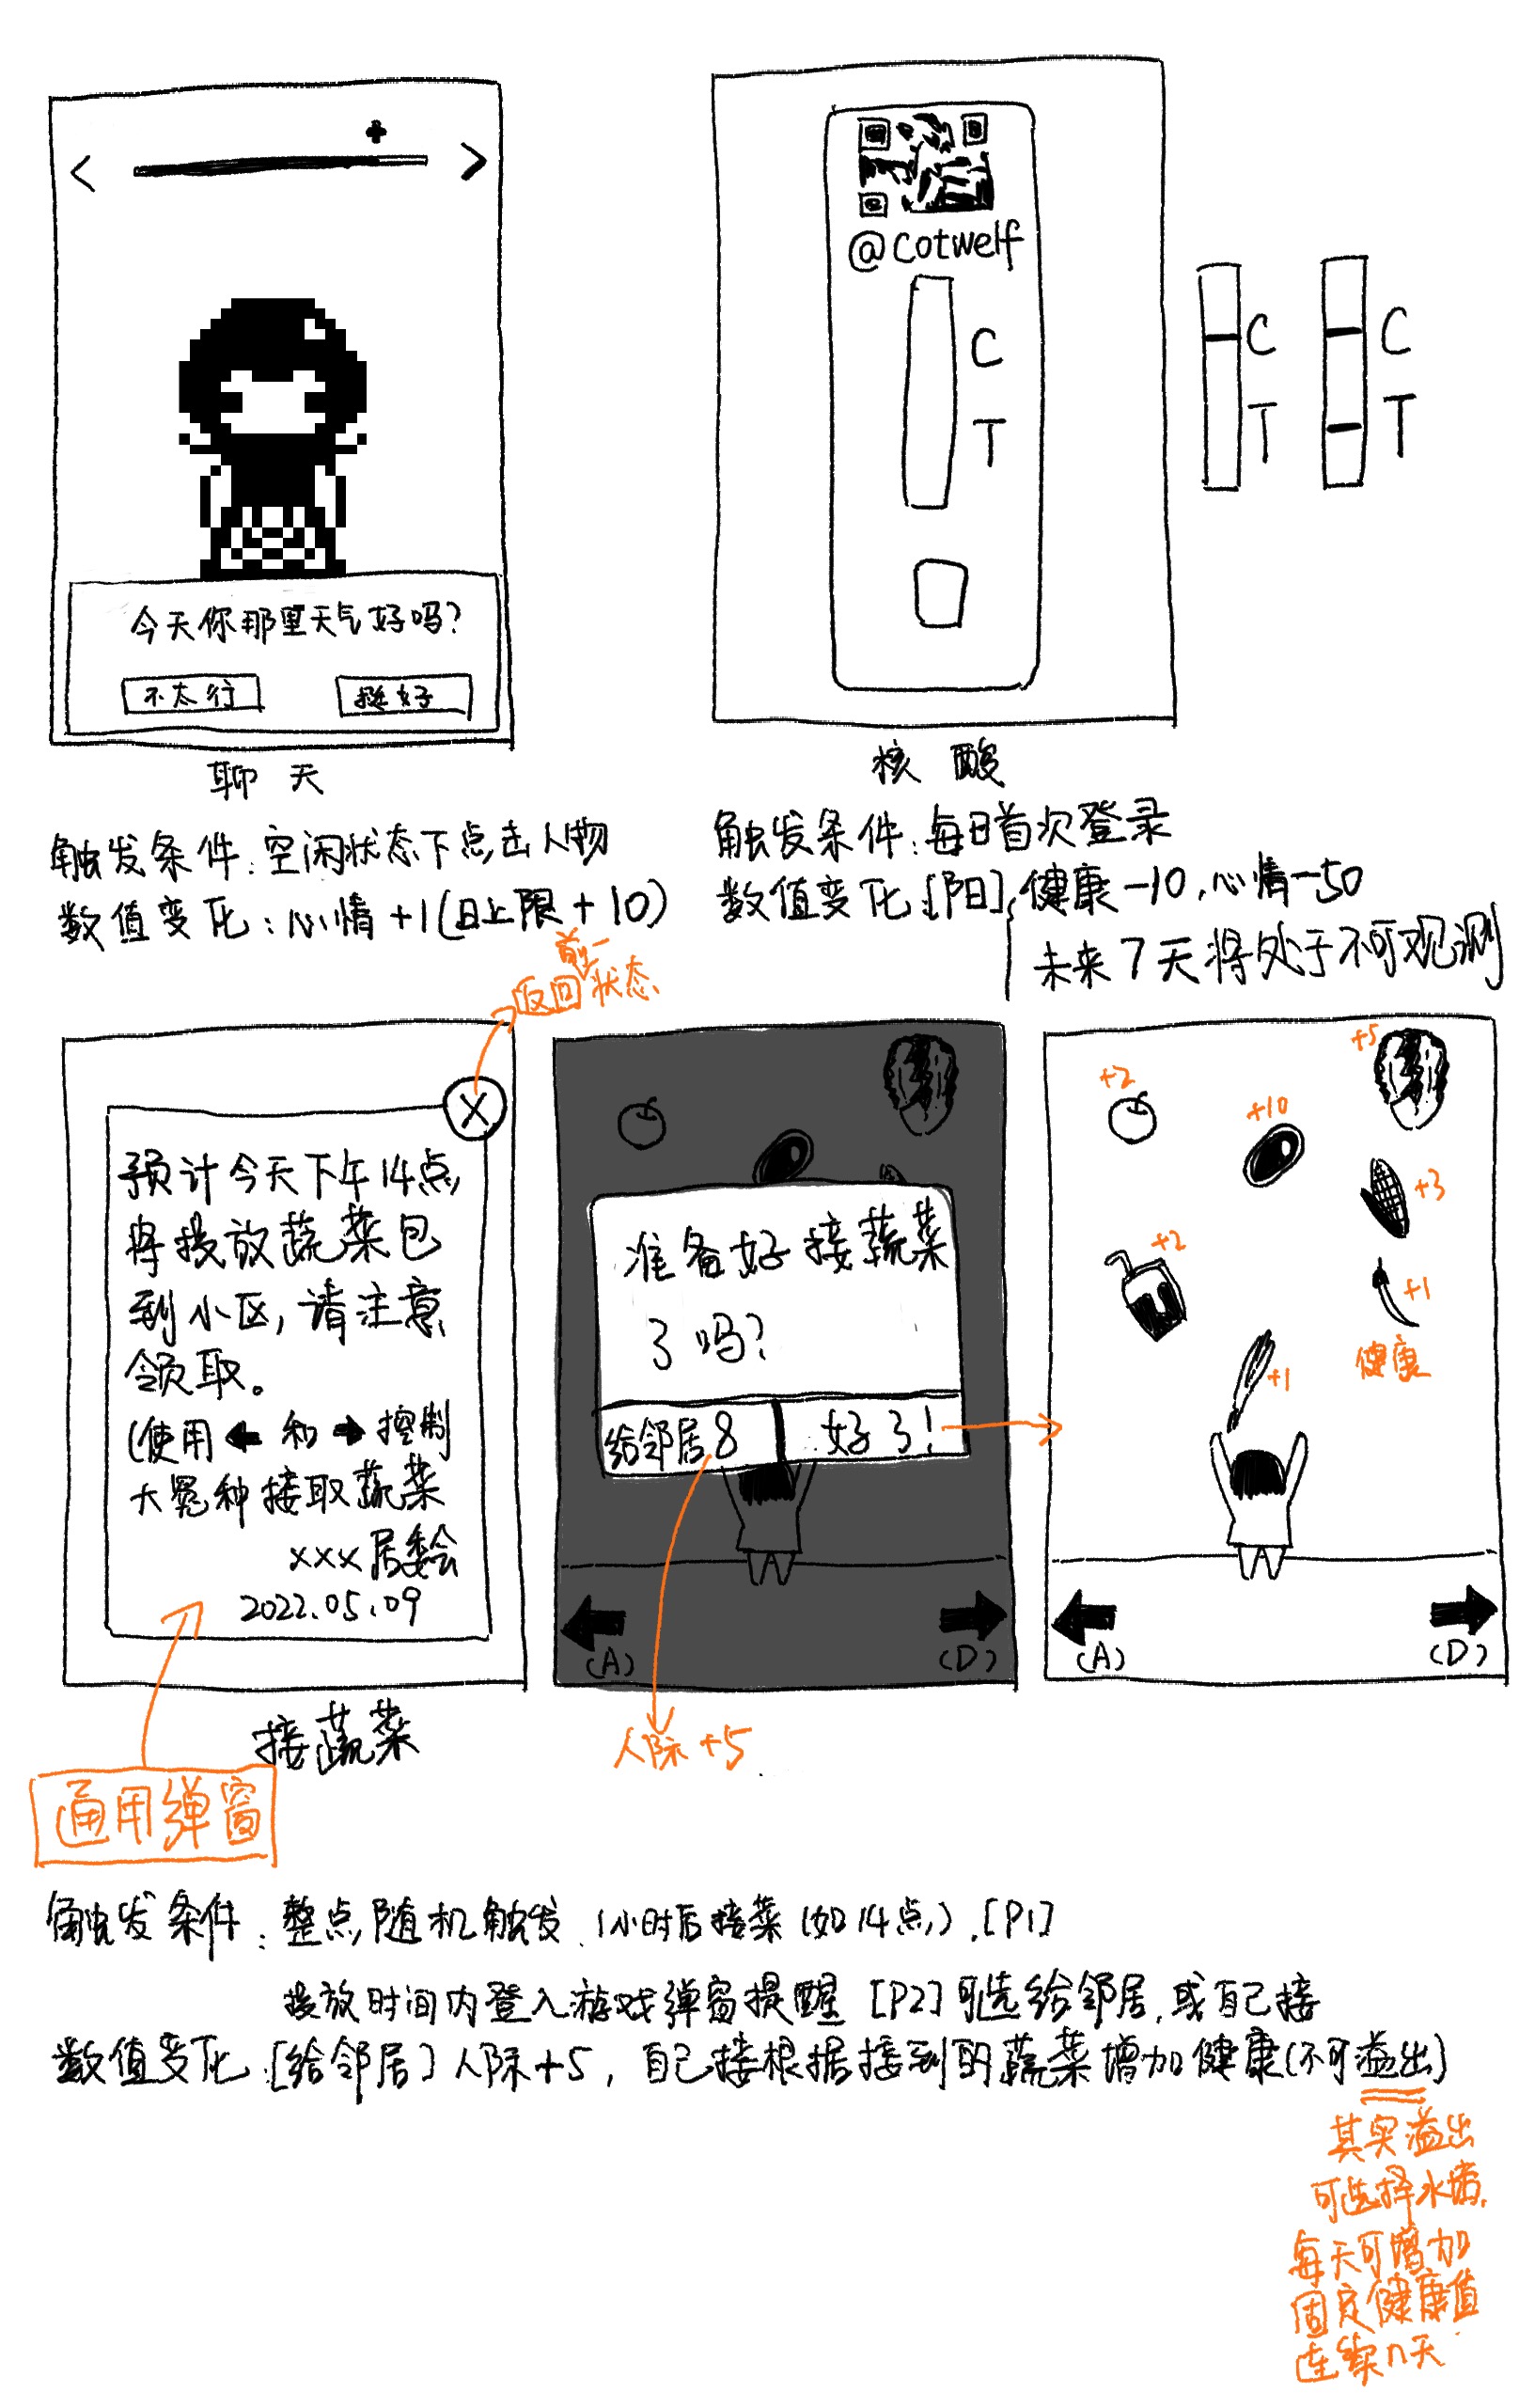 今天你那里天气好吗?
不太行
挺好
聊天
触发条件:空闲状态下点击人物
数值变化:心情+1(日上限+10)
@cotwelf
C
T
C
T
C
T
核酸
触发条件:每日首次登录
数值变化:[阳]健康-10,心情-50
未来7天将处于不可观测
返回前一状态
X
预计今天下午14点,
将投放蔬菜包
到小区,请注意
领取。
(使用←和→控制
大冤种接取蔬菜
xxx居委会
2022.05.09
接蔬菜
通用弹窗
准备好接蔬菜
了吗?
给邻居8
好了!
(A)
(D)
人际+5
+2
+10
+5
+3
+2
+1
健康
+1
(A)
(D)
触发条件:整点随机触发.1小时后接菜(如14点).[P1]
投放时间内登入游戏弹窗提醒[P2]可选给邻居,或自己接
数值变化:[给邻居]人际+5,自己接根据接到的蔬菜增加健康(不可溢出)
其实溢出
可选择水培,
每天可增加
固定健康值
连续n天